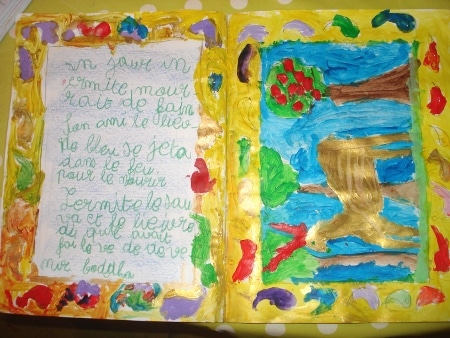 un jour un
ermite mour
rait de faim
son ami le liev
re bleu se jeta
dans le feu
pour le nourir
L'ermite le sau
va et le lièvre
di qu'il avait
fai le ve de de ve
nir boddha